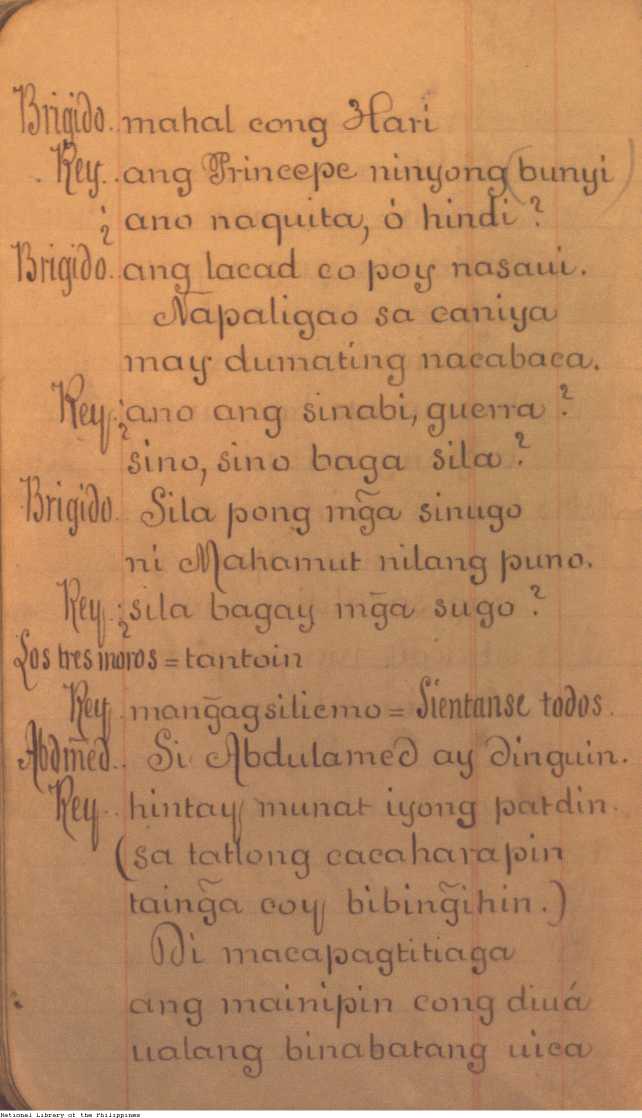 Brigido. mahal cong Hari
Rey. ang Princepe ninyong (bunyi)
¿ano naquita, ó hindi?
Brigido. ang lacad co poy nasaui.
Napaligao sa caniya
may dumating nacabaca.
Rey. ¿ano ang sinabi, guerra?
sino, sino baga sila?
Brigido. Sila pong mg̃a sinugo
ni Mahamut nilang puno.
Rey. ¿sila bagay mg̃a sugo?
Los tres moros = tantoin
Rey. mang̃agsiliemo = Sientanse todos.
Abdmed. Si Abdulamed ay dinguin.
Rey. hintay munat iyong patdin.
(sa tatlong cacaharapin
taing̃a coy bibing̃ihin.)
Di macapagtitiaga
ang mainipin cong diuá
ualang binabatang uica
National Library of the Philippines